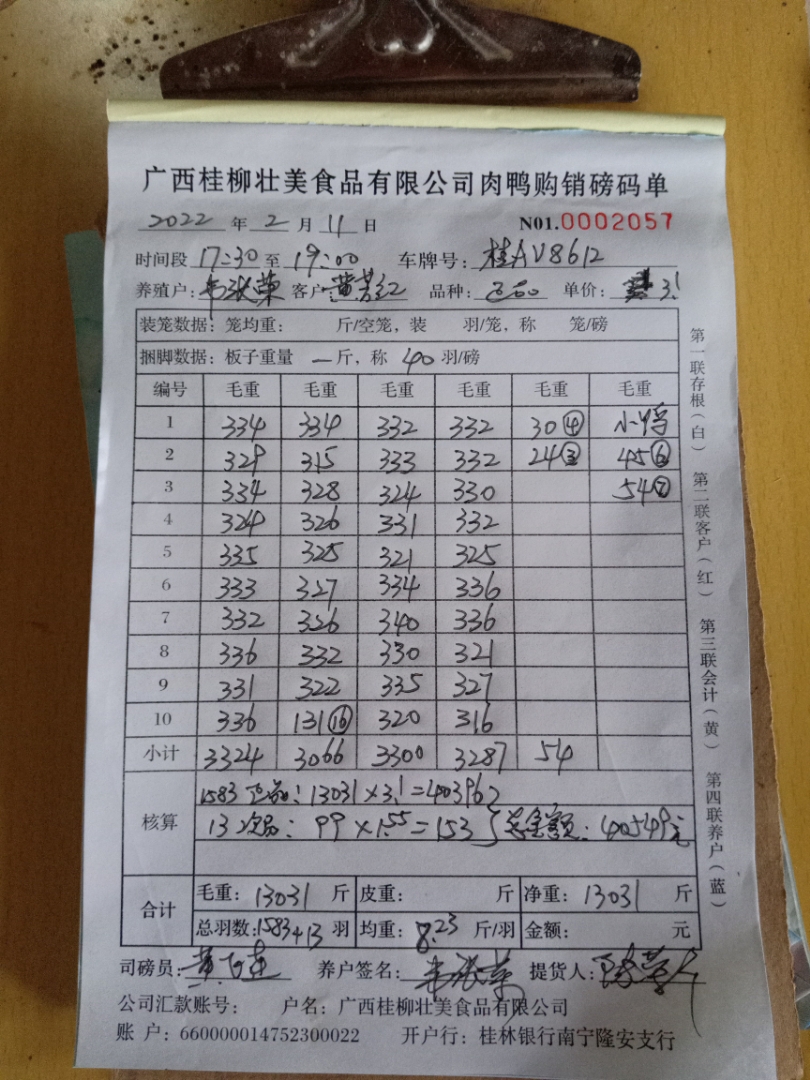 广西桂柳壮美食品有限公司肉鸭购销磅码单
2022 年 2 月 11 日 N01.0002057
时间段 17:30 至 19:00 车牌号: 桂AV8612
养殖户: 客户 黄芳红 品种: 正品 单价: 3.1
装笼数据: 笼均重: 斤/空笼, 装 羽/笼, 称 笼/磅
捆脚数据: 板子重量 一 斤, 称 40 羽/磅
编号 毛重 毛重 毛重 毛重 毛重 毛重
1 334 334 332 332 30④ 小鸭
2 329 315 333 332 24③ 45⑥
3 334 328 324 330 54⑦
4 324 326 331 332
5 335 325 321 325
6 333 327 334 336
7 332 326 340 336
8 336 332 330 321
9 331 322 335 327
10 336 131⑯ 320 316
小计 3324 3066 3300 3287 54
核算 1583 正品: 13031×3.1=40396
13 次品: 99×1.55=153 } 总金额: 40549元
合计 毛重: 13031 斤 皮重: 斤 净重: 13031 斤
总羽数: 1583+13 羽 均重: 8.23 斤/羽 金额: 元
司磅员: 养户签名: 提货人:
公司汇款账号: 户名: 广西桂柳壮美食品有限公司
账 户: 660000014752300022 开户行: 桂林银行南宁隆安支行
第一联存根(白) 第二联客户(红) 第三联会计(黄) 第四联养户(蓝)